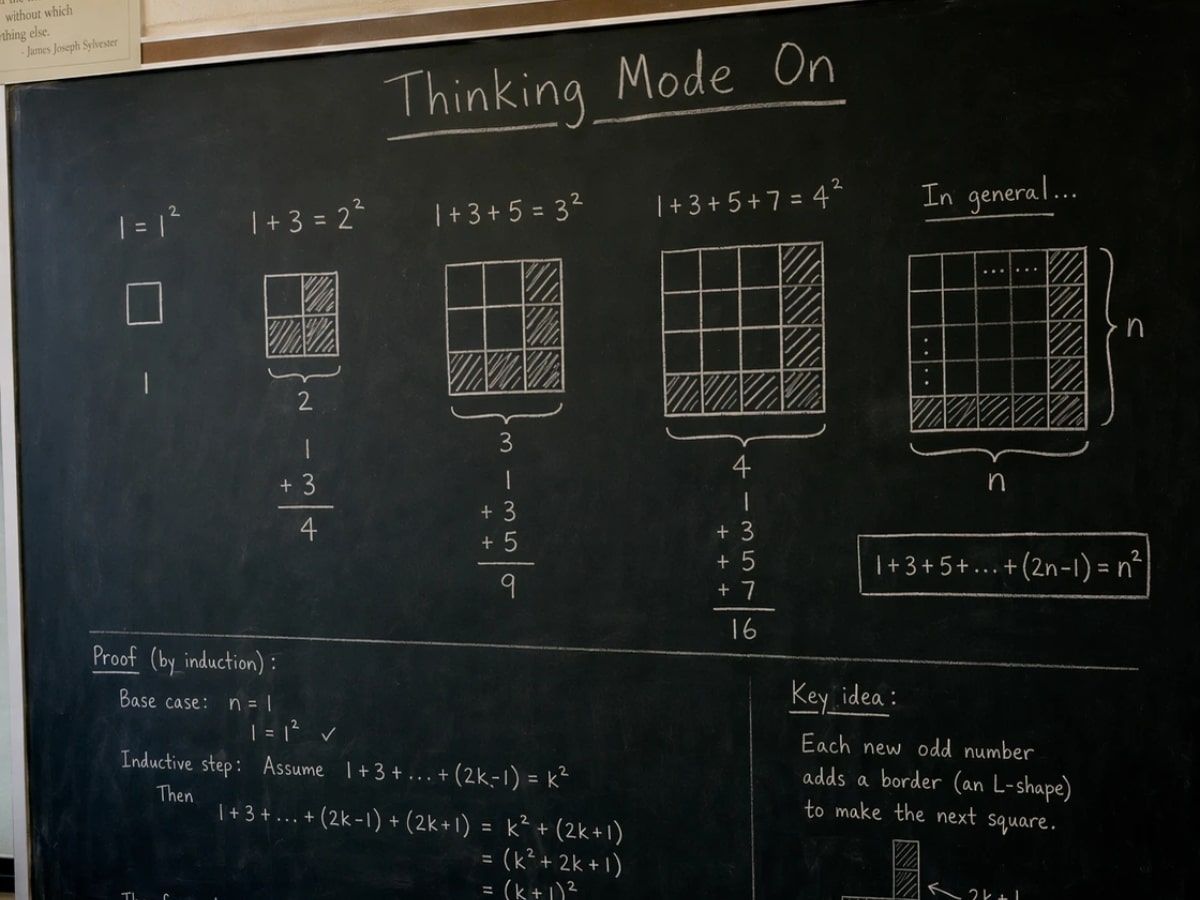 without which
thing else.
- James Joseph Sylvester
Thinking Mode On
1 = 1²
1
1 + 3 = 2²
2
1
+ 3
4
1 + 3 + 5 = 3²
3
1
+ 3
+ 5
9
1 + 3 + 5 + 7 = 4²
4
1
+ 3
+ 5
+ 7
16
In general...
... ...
n
n
1 + 3 + 5 + ... + (2n-1) = n²
Proof (by induction):
Base case: n = 1
1 = 1² ✓
Inductive step: Assume 1 + 3 + ... + (2k-1) = k²
Then
1 + 3 + ... + (2k-1) + (2k+1) = k² + (2k+1)
= (k² + 2k + 1)
= (k+1)²
Key idea:
Each new odd number
adds a border (an L-shape)
to make the next square.
2k+1